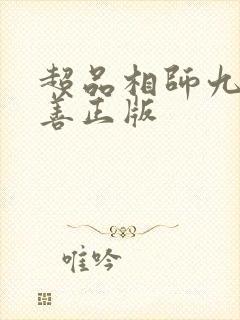 超品相师九
善正版
唯吟